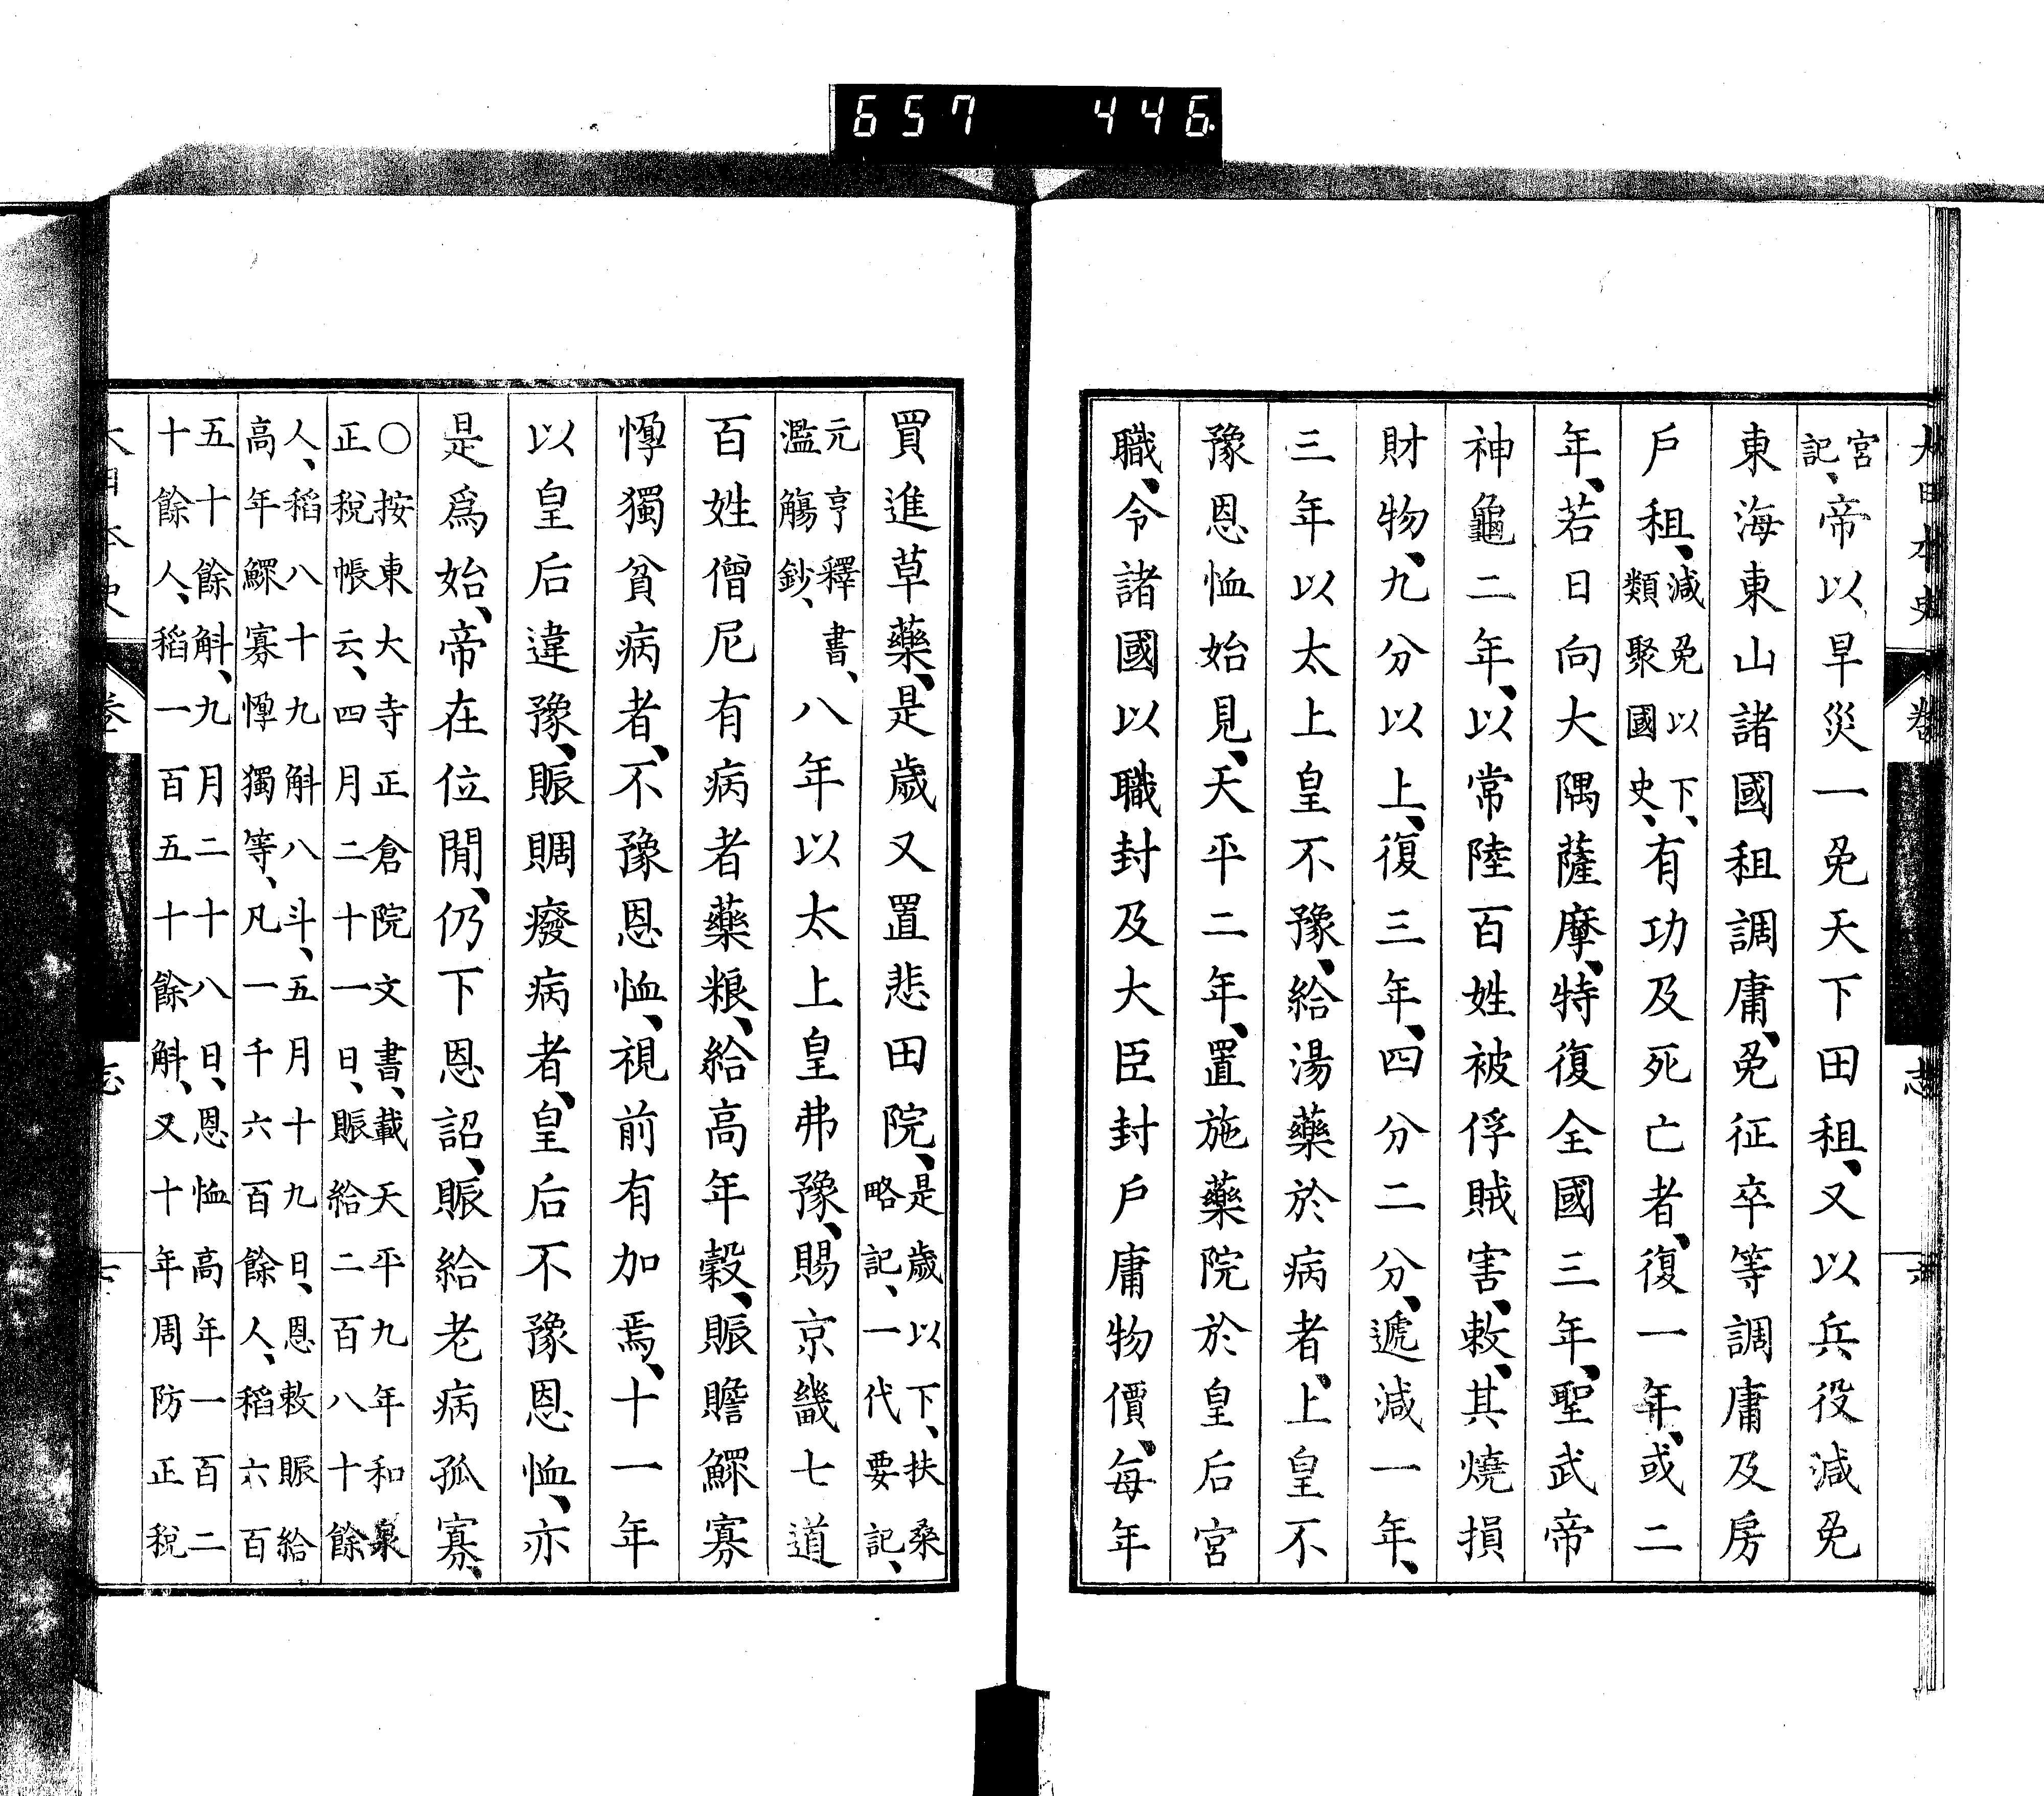 657 446
大日本史 卷 志 六
宮記、帝以旱災一免天下田租、又以兵役減免
東海東山諸國租調庸、免征卒等調庸及房
戶租、減免以下、類聚國史、有功及死亡者、復一年、或二
年、若日向大隅薩摩、特復全國三年、聖武帝
神龜二年、以常陸百姓被俘賊害、敕、其燒損
財物、九分以上、復三年、四分二分、遞減一年、
三年以太上皇不豫、給湯藥於病者、上皇不
豫恩恤始見、天平二年、置施藥院於皇后宮
職、令諸國以職封及大臣封戶庸物價、每年
買進草藥、是歲又置悲田院、是歲以下、扶桑略記、一代要記、
元亨釋書、濫觴鈔、八年以太上皇弗豫、賜京畿七道
百姓僧尼有病者藥粮、給高年穀、賑贍鰥寡
惸獨貧病者、不豫恩恤、視前有加焉、十一年
以皇后違豫、賑賙癈病者、皇后不豫恩恤、亦
是爲始、帝在位閒、仍下恩詔、賑給老病孤寡、
○按東大寺正倉院文書、載天平九年和泉
正稅帳云、四月二十一日、賑給二百八十餘
人、稻八十九斛八斗、五月十九日、恩敕賑給
高年鰥寡惸獨等、凡一千六百餘人、稻六百
五十餘斛、九月二十八日、恩恤高年一百二
十餘人、稻一百五十餘斛、又十年周防正稅